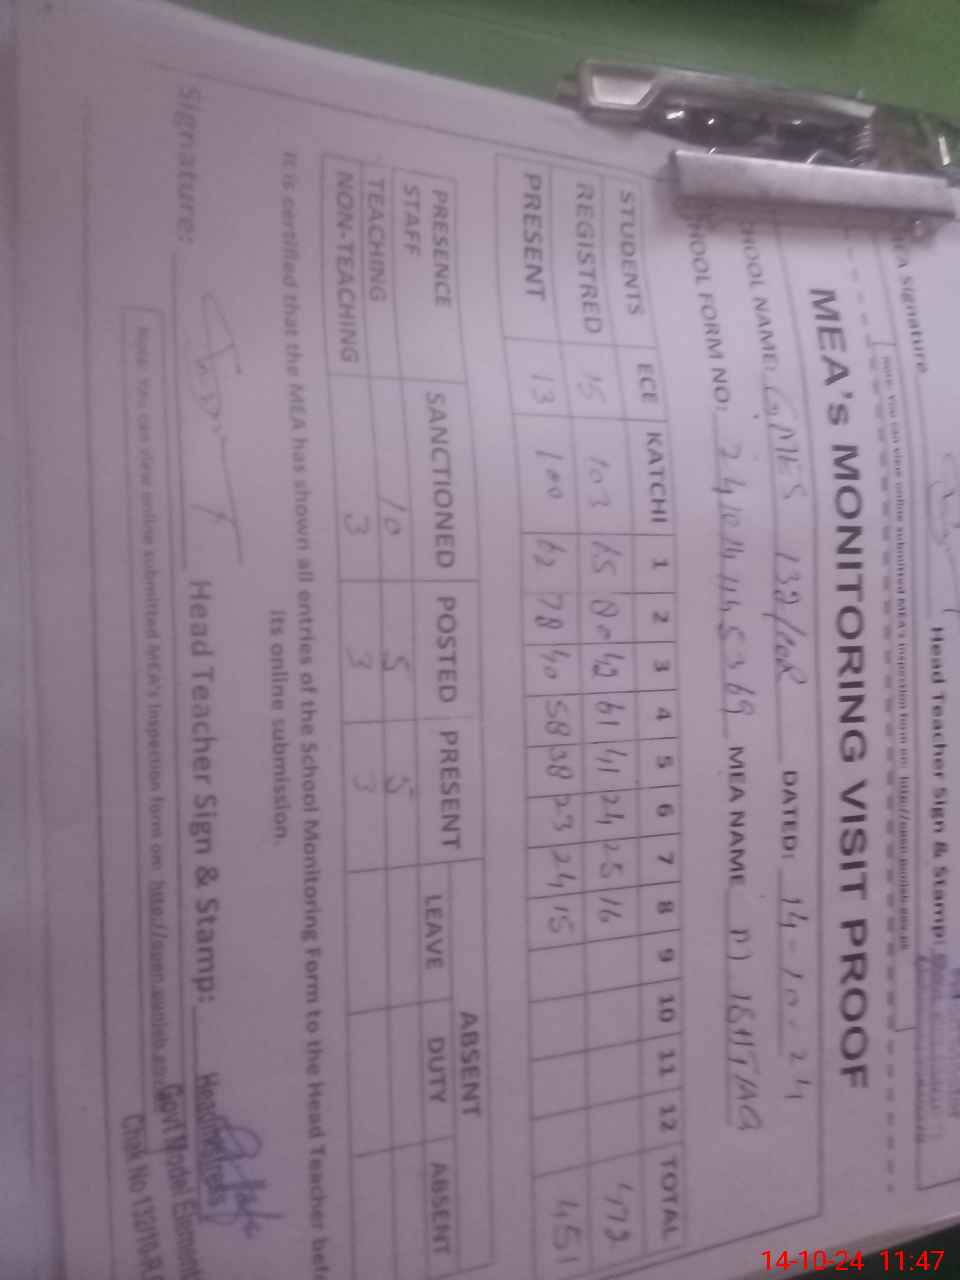 MEA Signature Head Teacher Sign & Stamp:
Note: You can view online submitted MEA's inspection form on: http://open.punjab.gov.pk
MEA's MONITORING VISIT PROOF
CHOOL NAME: GMES 132/10R DATED: 14-10-24
HOOL FORM NO: MEA NAME M ISHTIAQ
STUDENTS ECE KATCHI 1 2 3 4 5 6 7 8 9 10 11 12 TOTAL
REGISTRED 15 103 65 80 42 61 41 24 25 16 472
PRESENT 13 100 62 78 40 58 38 23 24 15 451
PRESENCE SANCTIONED POSTED PRESENT ABSENT
STAFF LEAVE DUTY ABSENT
TEACHING 10 5 5
NON-TEACHING 3 3 3
It is certified that the MEA has shown all entries of the School Monitoring Form to the Head Teacher bef
its online submission.
Signature: Head Teacher Sign & Stamp:
Headmistress
Govt Model Element
Chak No 132/10-R
Note: You can view online submitted MEA's inspection form on: http://open.punjab.gov
14-10-24 11:47